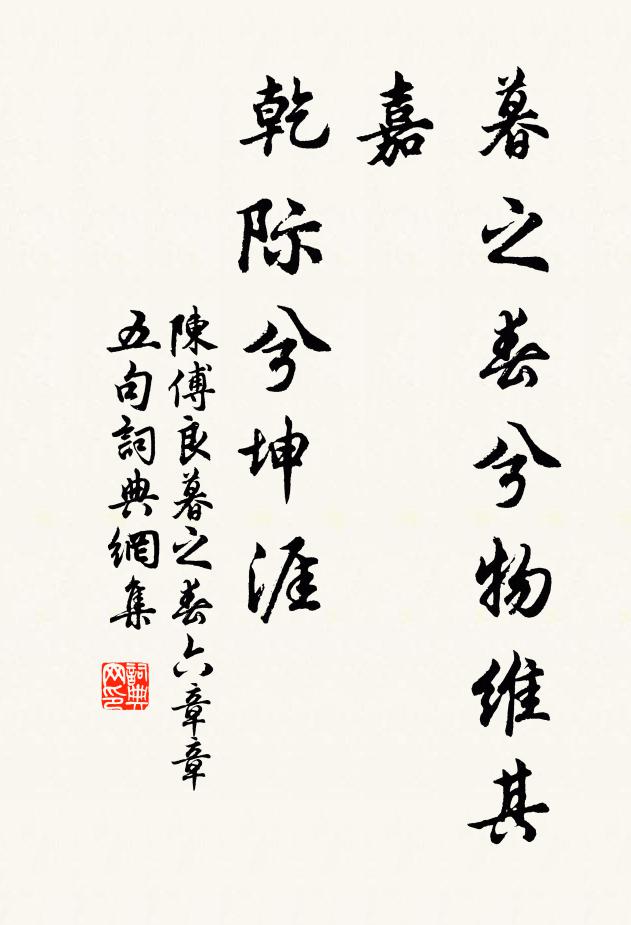 暮之春兮物維其
嘉
乾际兮坤涯
陳傅良暮之春六章章
五句詞典網集
詞典
网印